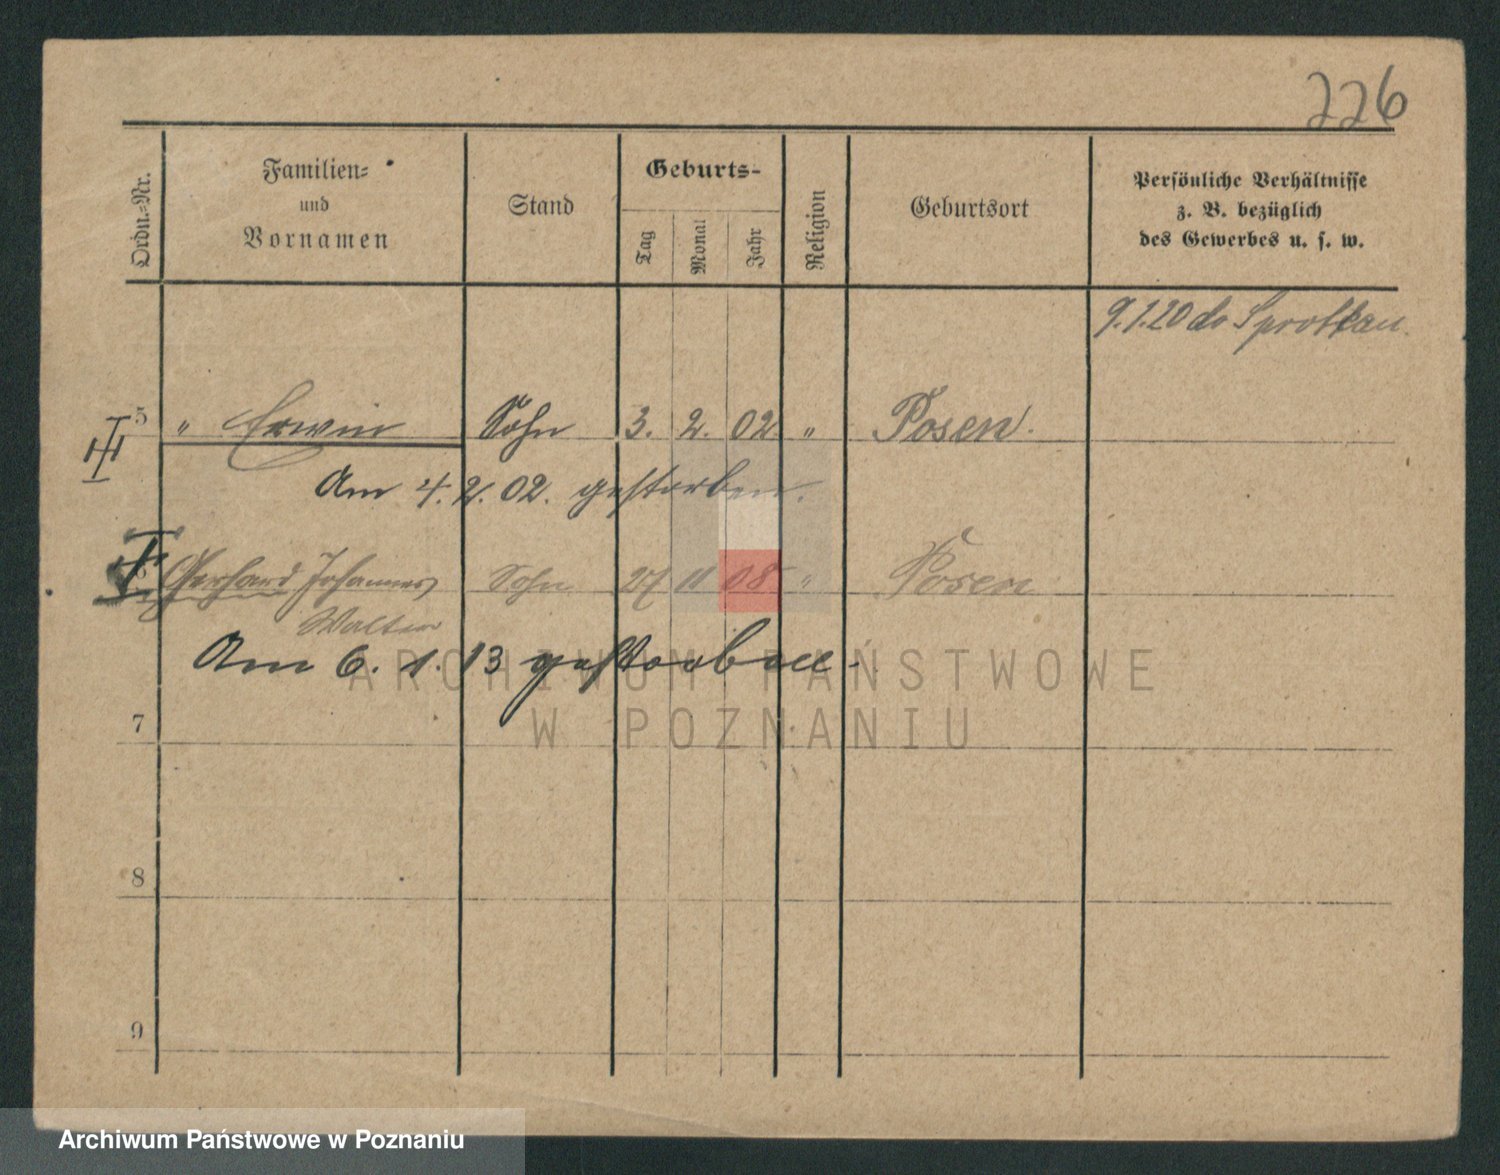 226
Ordn.-Nr.
Familien-
und
Vornamen
Stand
Geburts-
Tag
Monat
Jahr
Religion
Geburtsort
Persönliche Verhältnisse
z. B. bezüglich
des Gewerbes u. s. w.
9.1.20 do Sprottau.
5 " Erwin Sohn 3. 2. 02 " Posen.
Am 4. 2. 02. gestorben.
Gerhard Johannes Sohn 27 11 08 " Posen
Walter
Am 6. 1. 13 gestorben.
ARCHIWUM PAŃSTWOWE
W POZNANIU
7
8
9
Archiwum Państwowe w Poznaniu